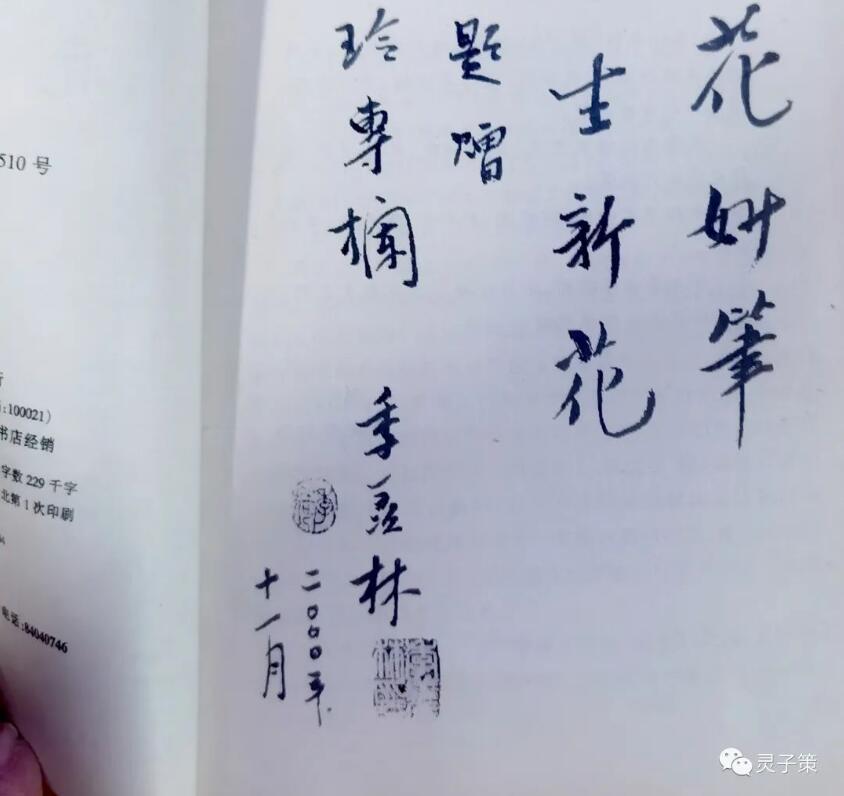 花妙筆
生新花
題贈
玲專欄
季羡林
二〇〇〇年
十一月
510 号
:100021)
书店经销
字数 229 千字
北第 1 次印刷
电话:84040746
灵子策